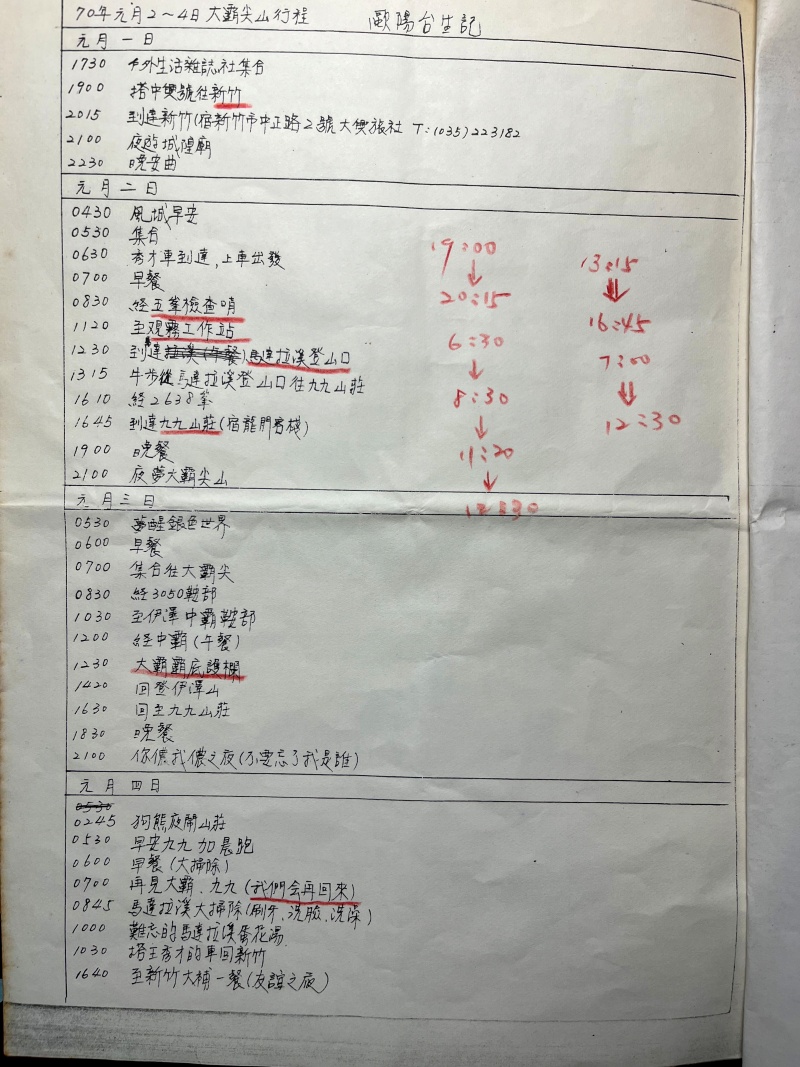 70年元月2~4日大霸尖山行程 歐陽台生記
元月一日
1730 戶外生活雜誌社集合
1900 搭中興號往新竹
2015 到達新竹(宿新竹市中正路2號大興旅社 T:(035)223182
2100 夜遊城隍廟
2230 晚安曲
元月二日
0430 風城早安
0530 集合
0630 秀才車到達,上車出發
0700 早餐
0830 經五峯檢查哨
1120 至观霧工作站
1230 到達馬達拉溪登山口
1315 牛步從馬達拉溪登山口往九九山莊
1610 經2638峯
1645 到達九九山莊(宿龍門客棧)
1900 晚餐
2100 夜夢大霸尖山
19:00
↓
20:15
6:30
↓
8:30
↓
11:20
↓
12:30
13:15
↓
16:45
7:00
↓
12:30
元月三日
0530 夢醒銀色世界
0600 早餐
0700 集合往大霸尖
0830 經3050鞍部
1030 至伊澤中霸鞍部
1200 經中霸(午餐)
1230 大霸霸底護欄
1420 回登伊澤山
1630 回至九九山莊
1830 晚餐
2100 你儂我儂之夜(不要忘了我是誰)
元月四日
0530
0245 狗熊夜鬧山莊
0530 早安九九加晨跑
0600 早餐(大掃除)
0700 再見大霸.九九(我們会再回來)
0845 馬達拉溪大掃除(刷牙、洗臉、洗澡)
1000 難忘的馬達拉溪蛋花湯
1030 搭王秀才的車回新竹
1640 至新竹大補一餐(友誼之夜)